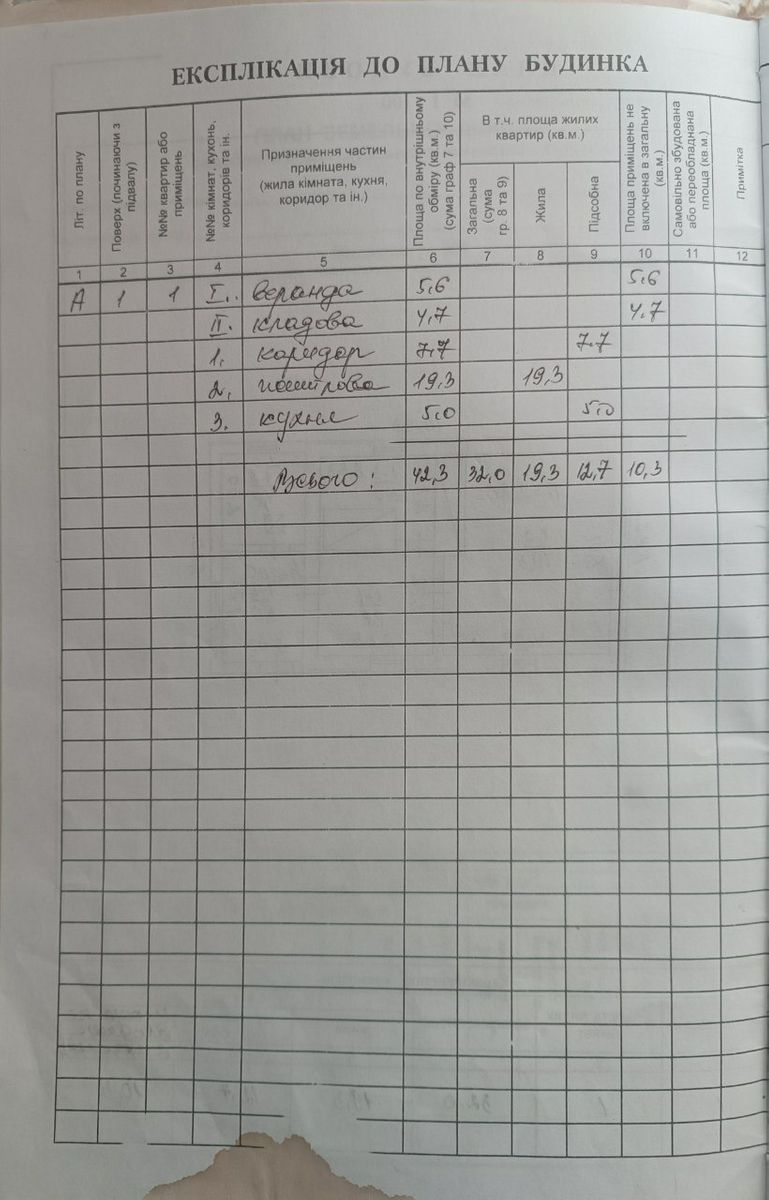 ЕКСПЛІКАЦІЯ ДО ПЛАНУ БУДИНКА
Літ. по плану
Поверх (починаючи з підвалу)
№№ квартир або приміщень
№№ кімнат, кухонь, коридорів та ін.
Призначення частин
приміщень
(жила кімната, кухня,
коридор та ін.)
Площа по внутрішньому обміру (кв.м.) (сума граф 7 та 10)
В т.ч. площа жилих
квартир (кв.м.)
Загальна (сума гр. 8 та 9)
Жила
Підсобна
Площа приміщень не включена в загальну (кв.м.)
Самовільно збудована або переобладнана площа (кв.м.)
Примітка
1 2 3 4 5 6 7 8 9 10 11 12
А 1 1 I. веранда 5,6 5,6
II. кладова 4,7 4,7
1. коридор 7,7 7.7
2. 19,3 19,3
3. кухня 5,0 5,0
Всього: 42,3 32,0 19,3 12,7 10,3